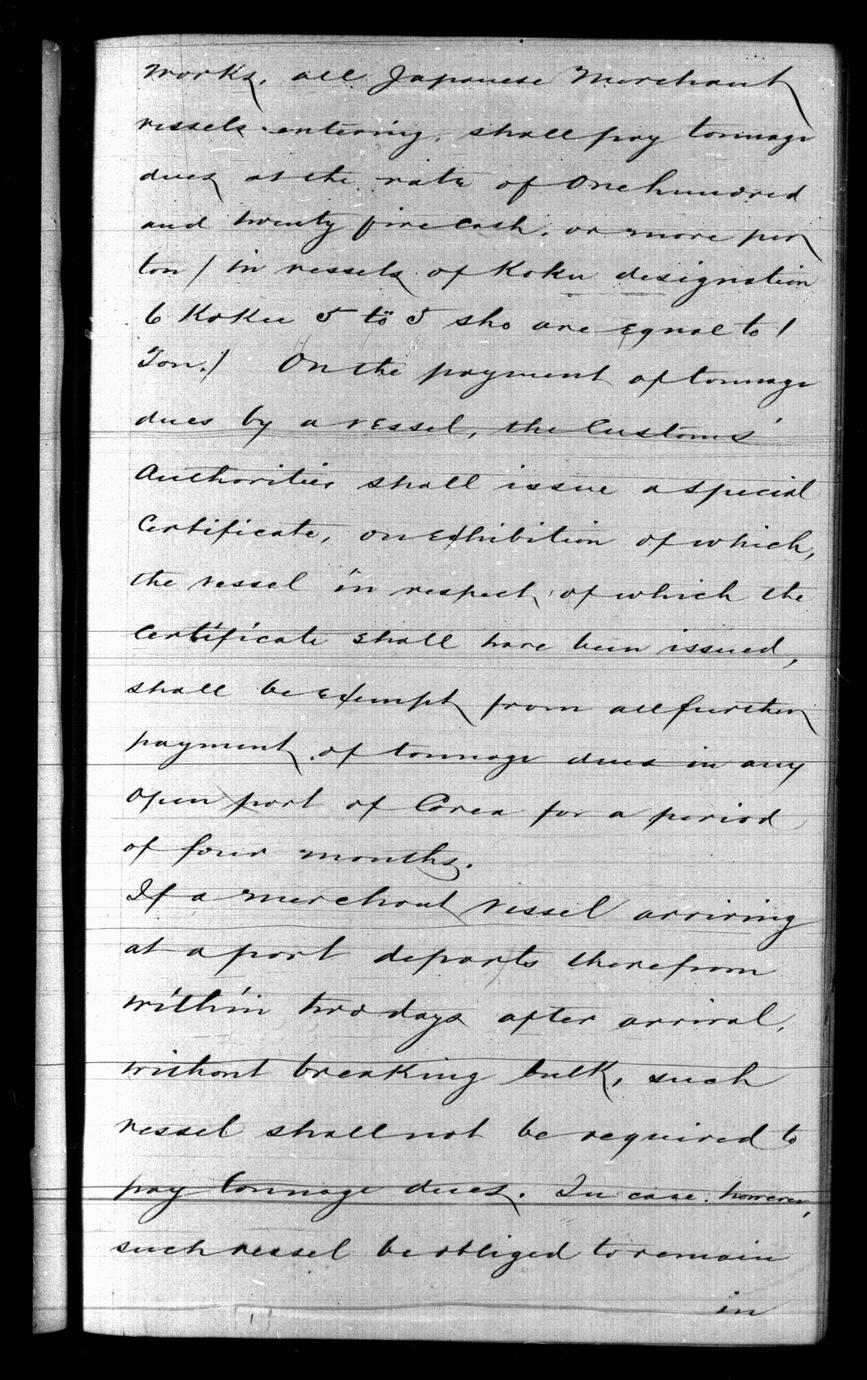 works, all Japanese Merchant
vessels entering, shall pay tonnage
dues at the rate of One hundred
and twenty five Cash. or more per
ton / in vessels of Koku designation
6 Koku 5 to 5 sho are equal to 1
Ton. / On the payment of tonnage
dues by a vessel, the Customs'
Authorities shall issue a special
Certificate, on exhibition of which,
the vessel in respect of which the
certificate shall have been issued,
shall be exempt from all further
payment of tonnage dues in any
open port of Corea for a period
of four months.
If a merchant vessel arriving
at a port departs therefrom
within two days after arrival,
without breaking bulk, such
vessel shall not be required to
pay tonnage dues. In case. however,
such vessel be obliged to remain
in